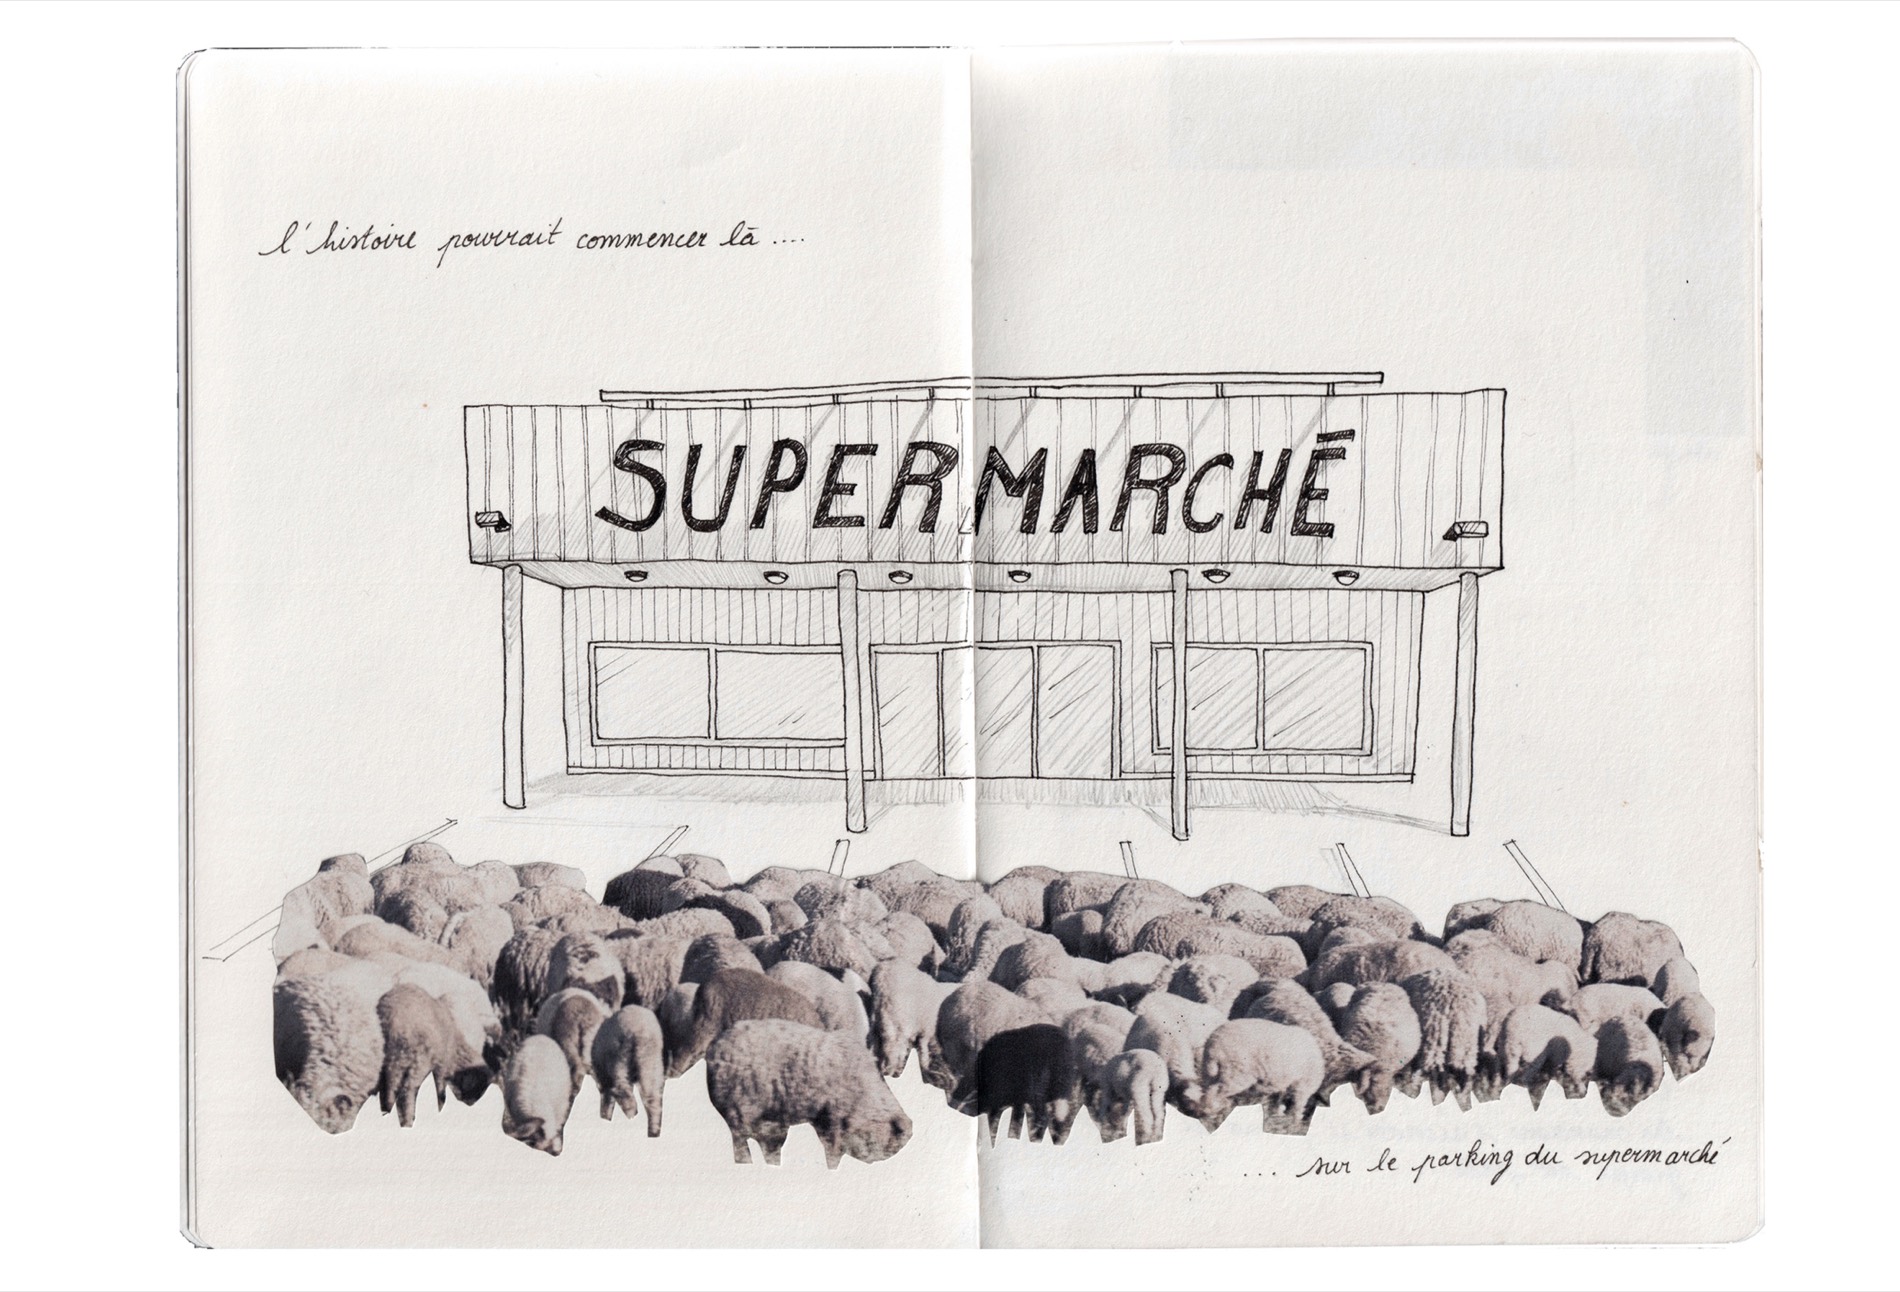 l'histoire pourrait commencer là ....
SUPERMARCHÉ
... sur le parking du supermarché